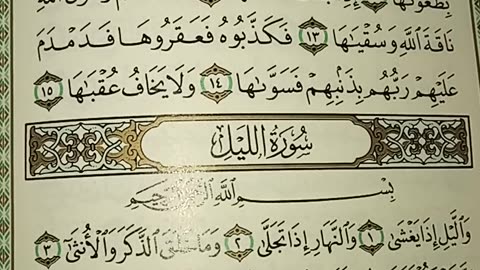 بِطَغْوَىٰهَآ
نَاقَةَ ٱللَّهِ وَسُقْيَـٰهَا ١٣ فَكَذَّبُوهُ فَعَقَرُوهَا فَدَمْدَمَ
عَلَيْهِمْ رَبُّهُم بِذَنۢبِهِمْ فَسَوَّىٰهَا ١٤ وَلَا يَخَافُ عُقْبَـٰهَا ١٥
سُورَةُ اللَّيْلِ
بِسْمِ ٱللَّهِ ٱلرَّحْمَـٰنِ ٱلرَّحِيمِ
وَٱلَّيْلِ إِذَا يَغْشَىٰ ١ وَٱلنَّهَارِ إِذَا تَجَلَّىٰ ٢ وَمَا خَلَقَ ٱلذَّكَرَ وَٱلْأُنثَىٰٓ ٣